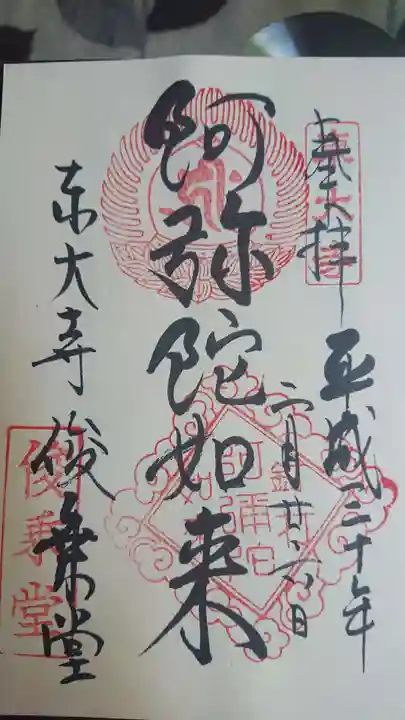 奉拝
平成二十年
二月廿六日
阿弥陀如来
東大寺 俊乗堂
俊乗堂